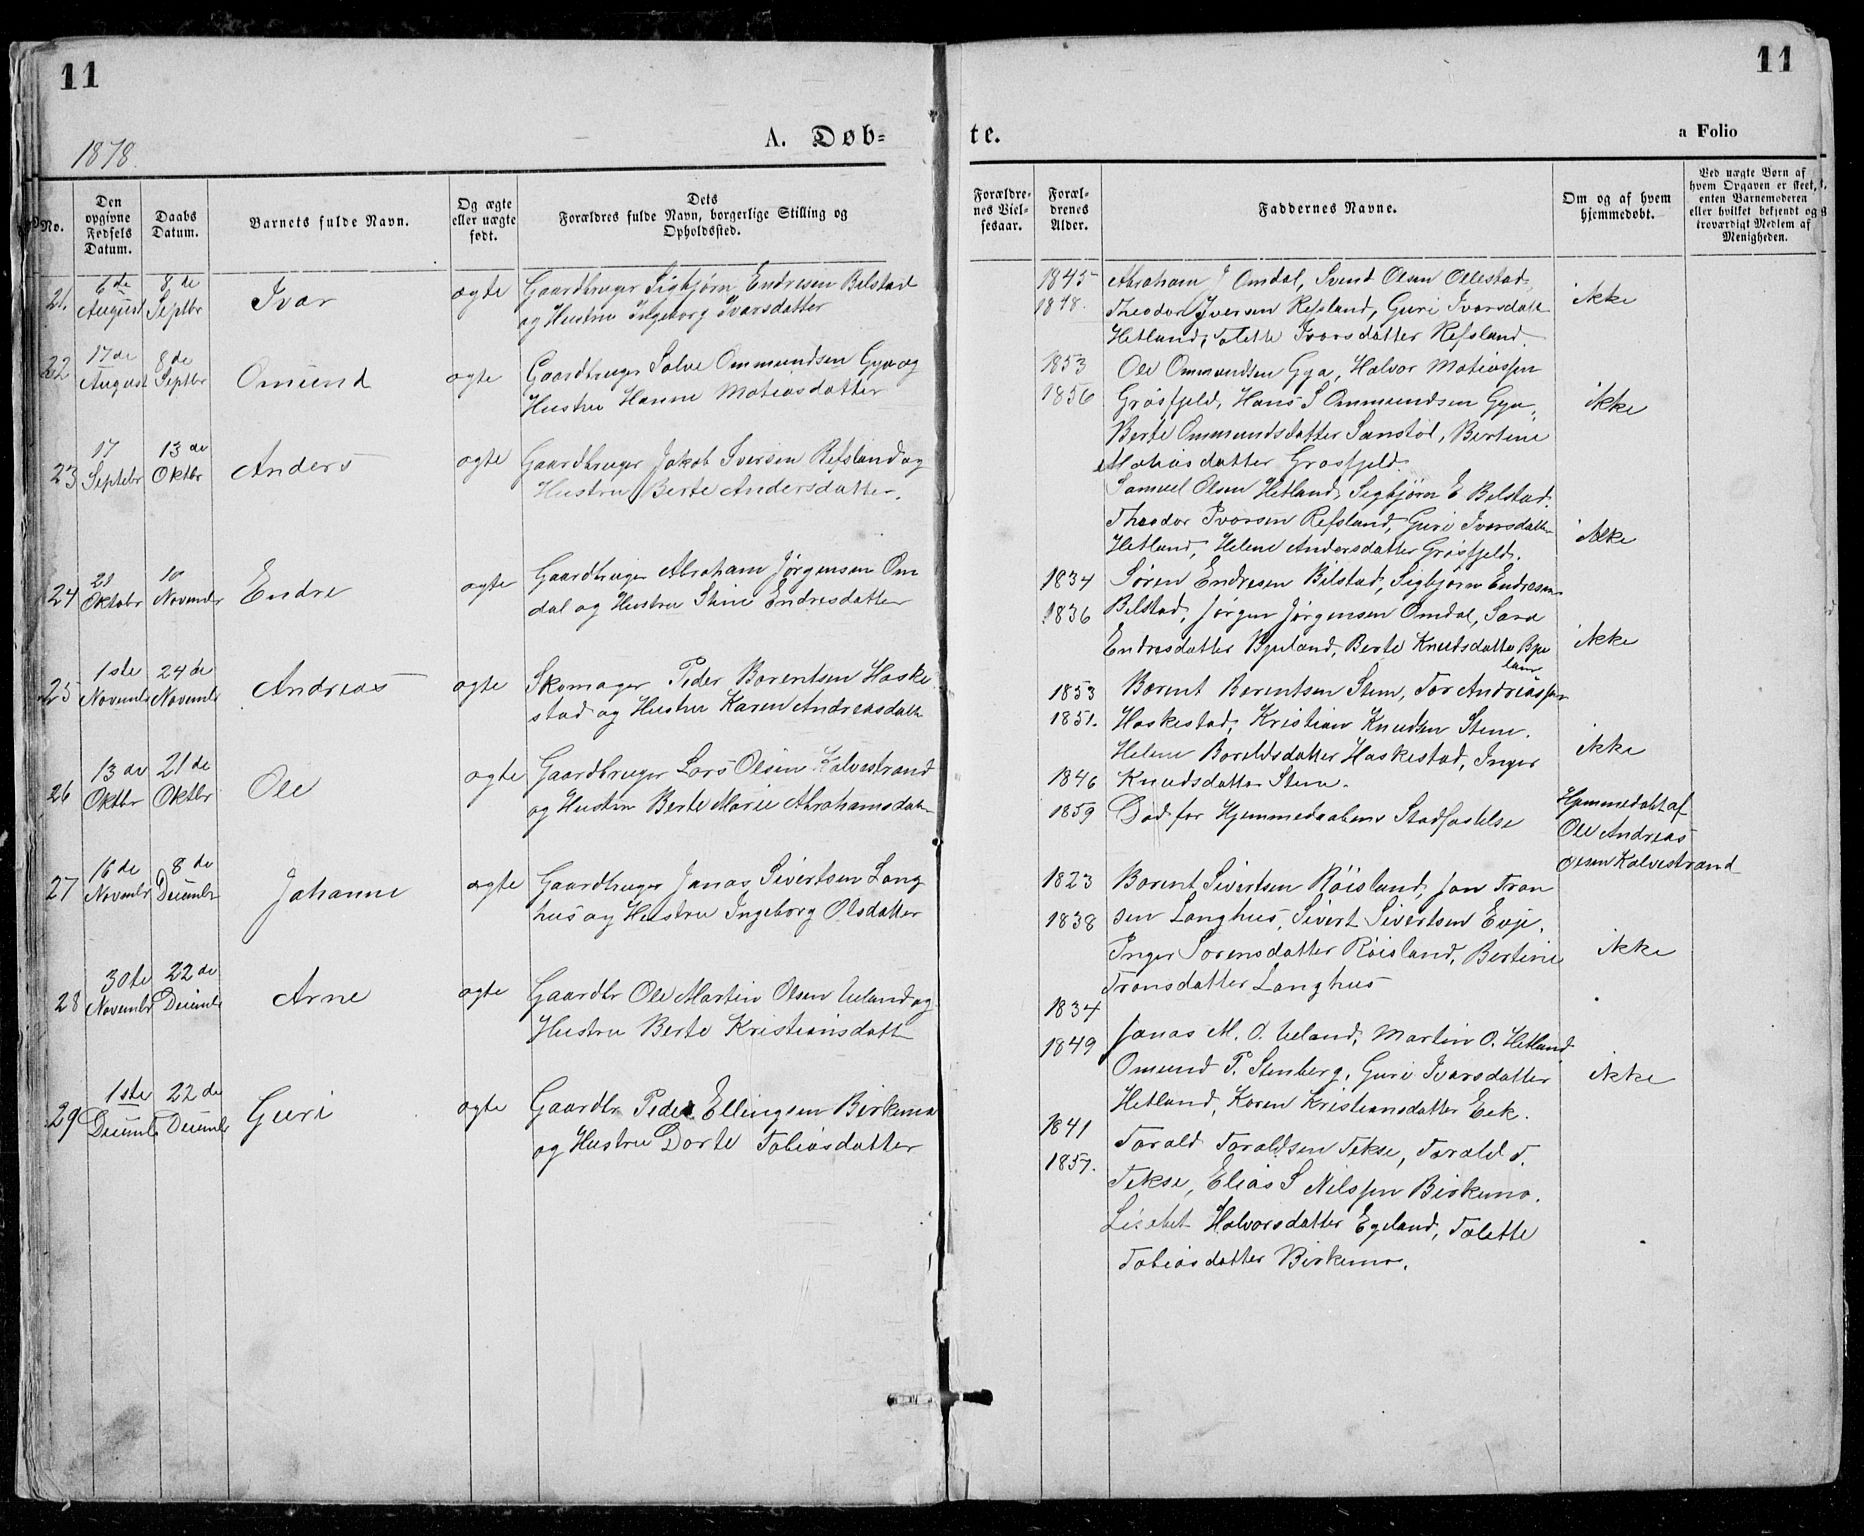 11
11
1878.
A. Døb=
te.
a Folio
No.
Den opgivne Fødsels Datum.
Daabs Datum.
Barnets fulde Navn.
Og ægte eller uægte født.
Dets Forældres fulde Navn, borgerlige Stilling og Opholdssted.
Forældrenes Vielsesaar.
Forældrenes Alder.
Faddernes Navne.
Om og af hvem hjemmedøbt.
Ved uægte Børn af hvem Opgaven er skeet, enten Barnemoderen eller hvilket bekjendt og troværdigt Medlem af Menigheden.
21. 6de August 8de Septbr Ivar ægte
Gaardbruger Sigbjørn Endresen Bilstad
og Hustru Ingeborg Ivarsdatter
1845 Abraham J Omdal, Svend Olsen Ollestad,
1848. Theodor Iversen Refsland, Guri Ivarsdatt
Hetland, Tolette Ivarsdatter Refsland.
ikke
22 17de August 8de Septbr Omund ægte
Gaardbruger Salve Ommundsen Gya og
Hustru Hanne Matiasdatter
1853 Ole Ommundsen Gya, Halvor Matiassen
1856 Grøsfjeld, Hans S Ommundsen Gya,
Berte Ommundsdatter Sanstøl, Bertine
Matiasdatter Grøsfjeld.
ikke
23 17 Septebr 13de Oktbr Anders ægte
Gaardbruger Jakob Iversen Refsland og
Hustru Berte Andersdatter.
Samuel Olsen Hetland, Sigbjørn E Bilstad.
Theodor Ivarsen Refsland, Guri Ivarsdatter
Hetland, Helene Andersdatter Grøsfjeld.
ikke
24 21 Oktobr 10 Novembr Endre ægte
Gaardbruger Abraham Jørgensen Om
dal og Hustru Stine Endresdatter
1834 Søren Endresen Bilstad, Sigbjørn Endresen
1836 Bilstad, Jørgen Jørgensen Omdal, Sara
Endresdatter Bjuland, Berte Knudsdatter Bju
land
ikke
25 1ste Novembr 24de Novembr Andreas ægte
Skomager Peder Borentsen Haske
stad og Hustru Karen Andreasdatt
1853 Borent Borentsen Steen, Tor Andreassen
1851. Haskestad, Kristian Knudsen Steen.
Helene Boreldsdatter Haskestad, Inger
Knudsdatter Steen.
ikke
26 13de Oktbr 21de Oktbr Ole ægte
Gaardbruger Lars Olsen Kalvestrand
og Hustru Berte Marie Abrahamsdatt
1846
1859 Død før Hjemmedaabens Stadfæstelse
Hjemmedøbt af
Ole Andreas
Olsen Kalvestrand
27 16de Novembr 8de Decembr Johanne ægte
Gaardbruger Jonas Sivertsen Lang
hus og Hustru Ingeborg Olsdatter
1823 Borent Sivertsen Røisland, Jon Tron
1838 sen Langhus, Sivert Sivertsen Eeje.
Inger Sørensdatter Røisland, Bertine
Tronsdatter Langhus
ikke
28 30te Novembr 22de Decembr Arne ægte
Gaardbr Ole Martin Olsen Ueland og
Hustru Berte Kristiansdatt
1834
1849 Jonas M. O. Ueland, Martin O. Hetland
Omund P. Stenberg, Guri Ivarsdatter
Hetland, Karen Kristiansdatter Eek.
ikke
29 1ste Decembr 22de Decembr Guri ægte
Gaardbr Peder Ellingsen Birkemo
og Hustru Dorte Tobiasdatter
1841 Tarald Taraldsen Tekse, Tarald T.
1851. Tekse, Elias S Nilssen Birkemo.
Lisabet Halvorsdatter Egeland, Tolette
Tobiasdatter Birkemo.